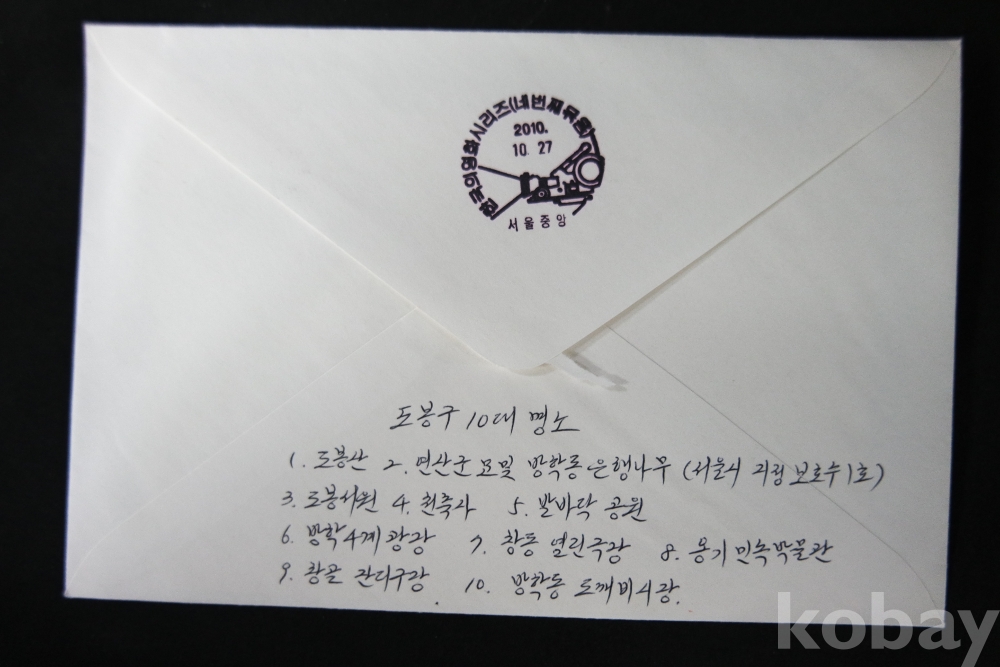 한국의영화시리즈(네번째묶음)
2010.
10. 27
서울중앙
도봉구 10대 명소
1. 도봉산 2. 연산군 묘및 방학동 은행나무 (서울시 지정 보호수 1호)
3. 도봉서원 4. 천축사 5. 발바닥 공원
6. 방학사계광장 7. 창동 열린극장 8. 옹기민속박물관
9. 창골 잔디구장 10. 방학동 도깨비시장.
kobay